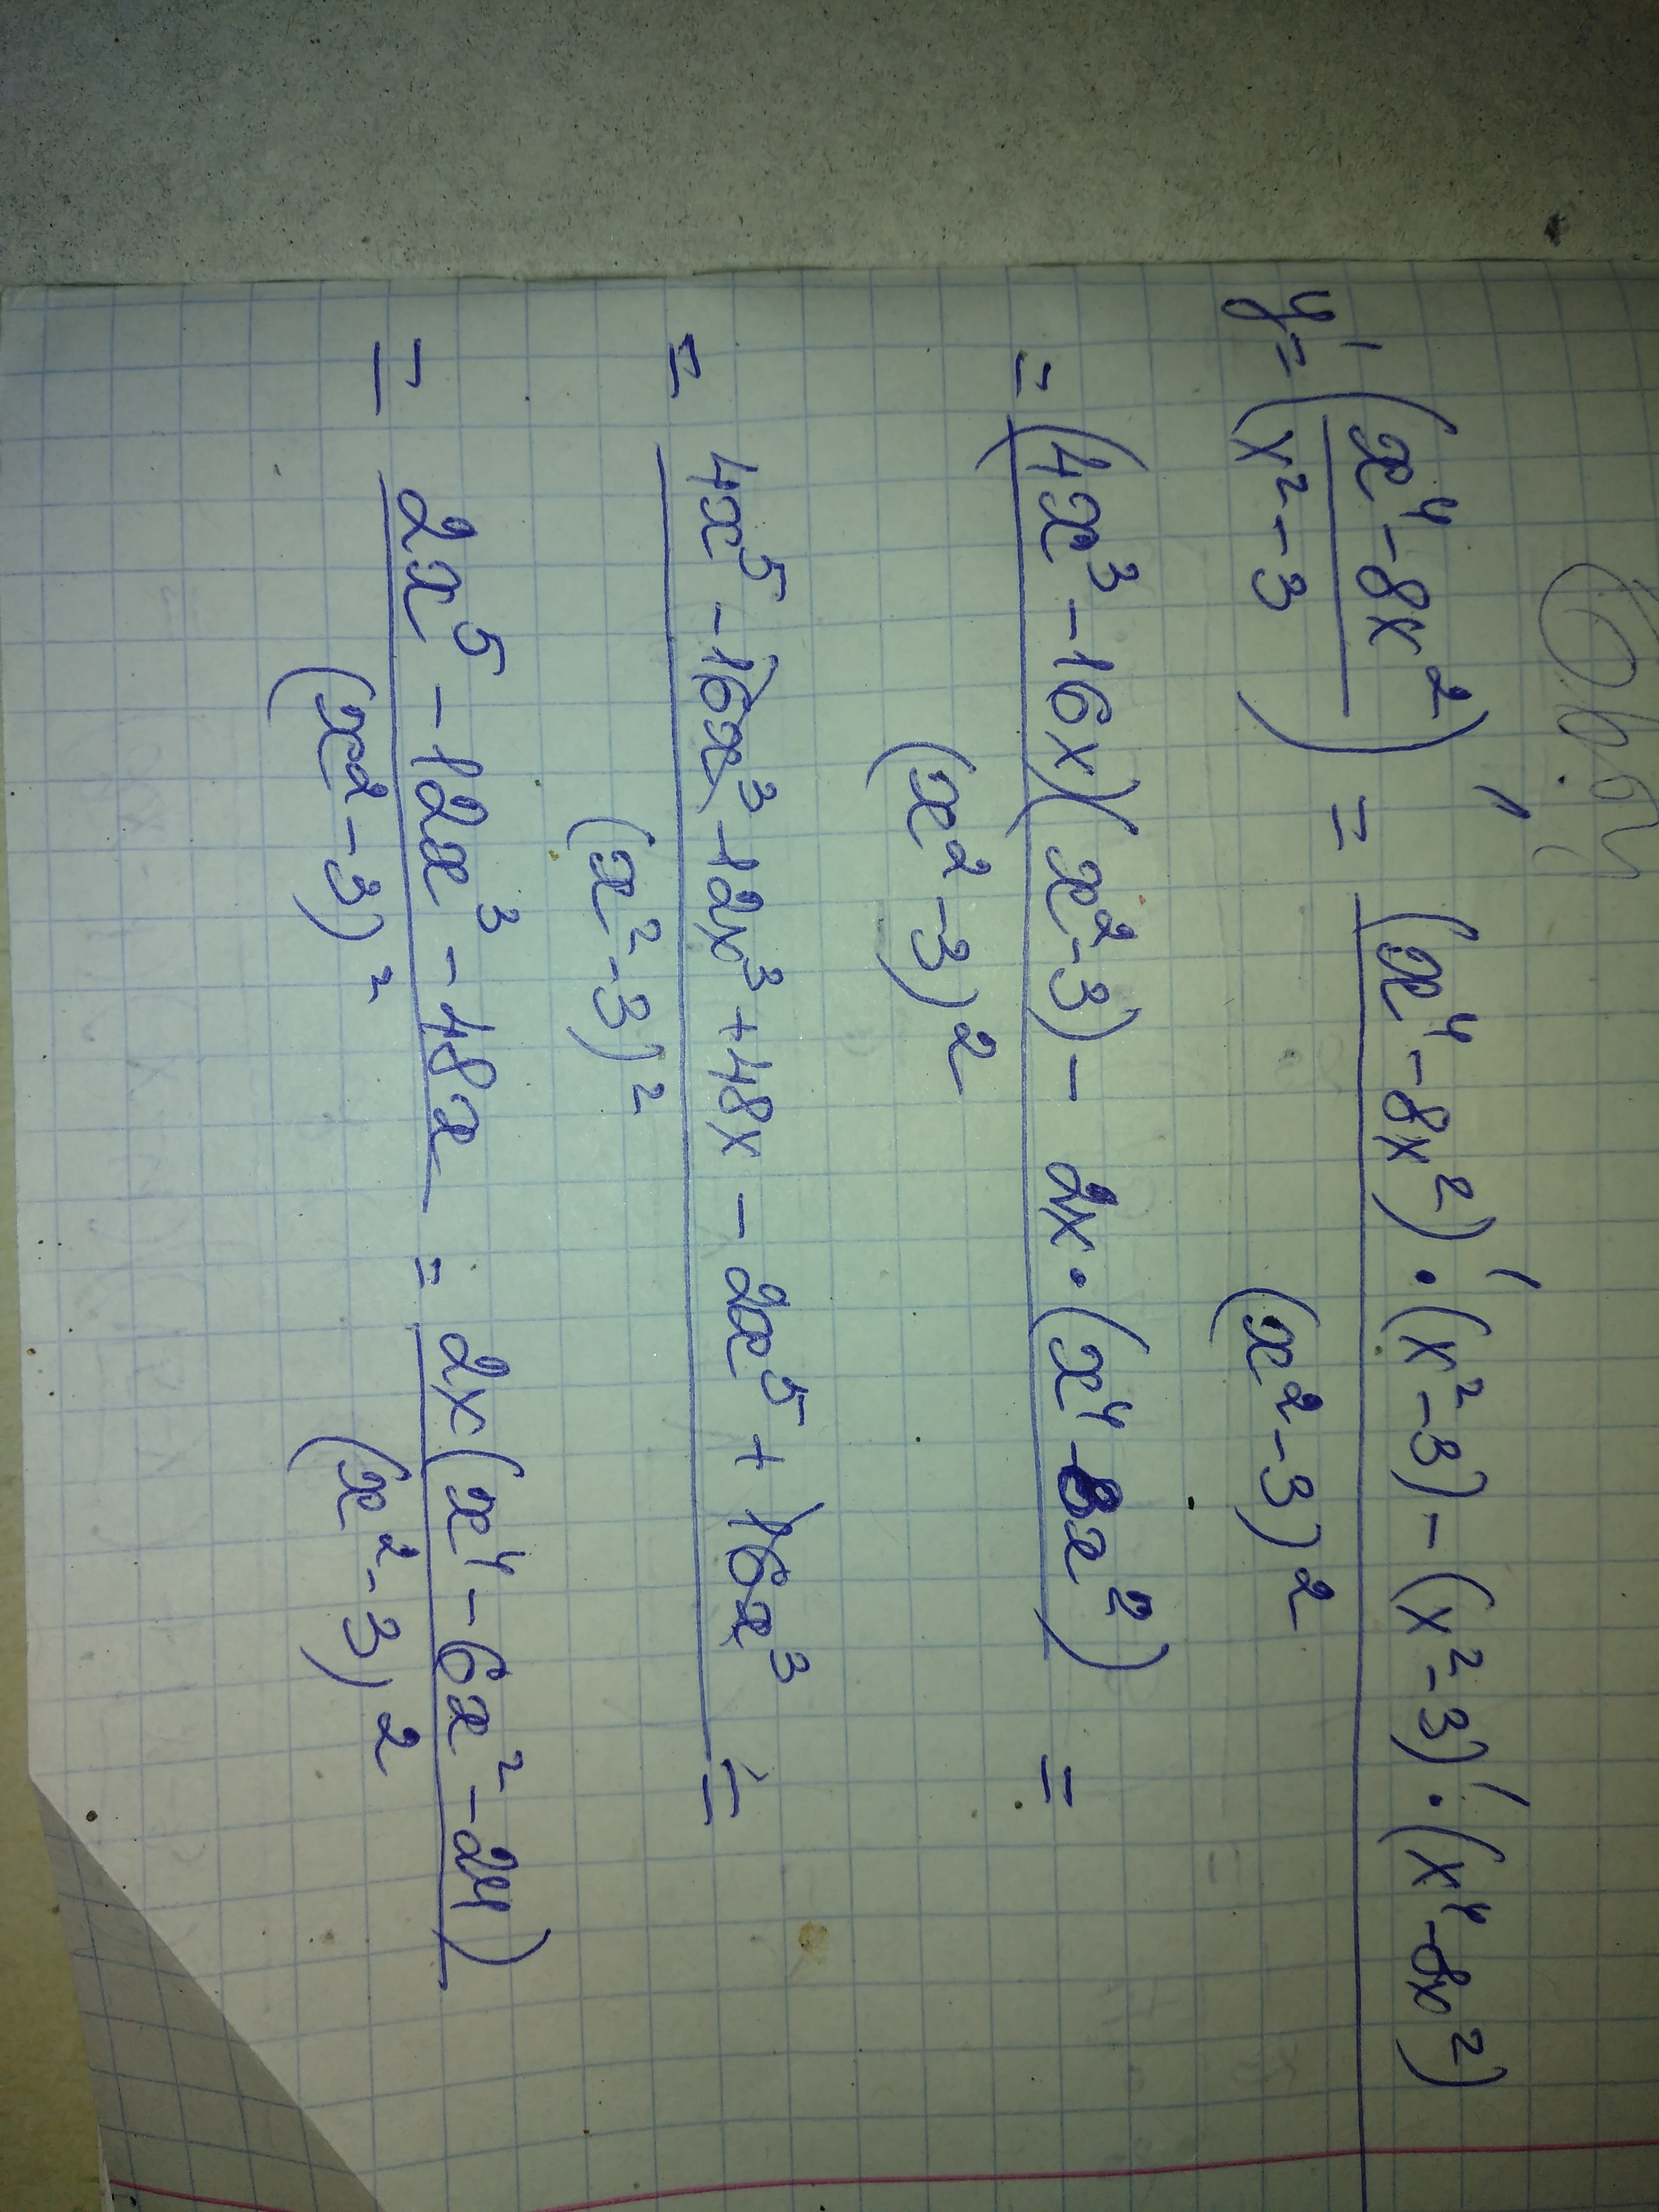 y' = (x⁴ - 8x² / x² - 3)' = (x⁴ - 8x²)' · (x² - 3) - (x² - 3)' · (x⁴ - 8x²) / (x² - 3)²
= (4x³ - 16x)(x² - 3) - 2x · (x⁴ - 8x²) / (x² - 3)² =
= 4x⁵ - 16x³ - 12x³ + 48x - 2x⁵ + 16x³ / (x² - 3)² =
= 2x⁵ - 12x³ - 48x / (x² - 3)² = 2x(x⁴ - 6x² - 24) / (x² - 3)²